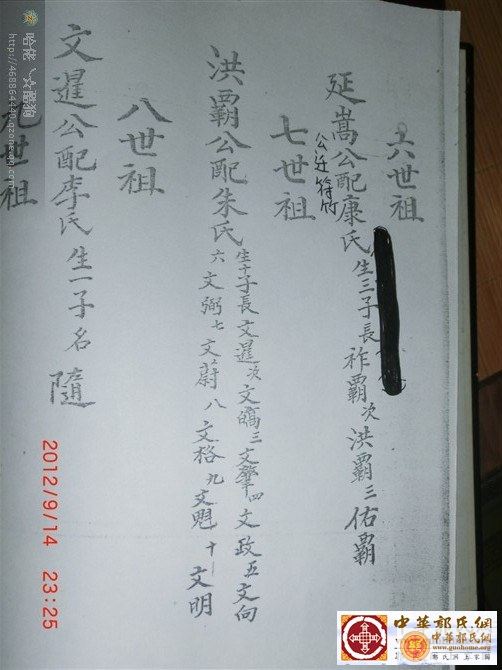 六世祖
延嵩公配康氏生三子長祚霸次洪霸三佑霸
公迁符竹
七世祖
洪霸公配朱氏生十子長文暹次文縞三文肇四文政五文向
六文弼七文蔚八文格九文魁十文明
八世祖
文暹公配李氏生一子名隨
九世祖
2012/9/14 23:25
哈佬╰☆酷狗
http://468864440.qzone.qq.com
中華郭氏網
中華郭氏網
www.guohome.org
郭氏网上家園